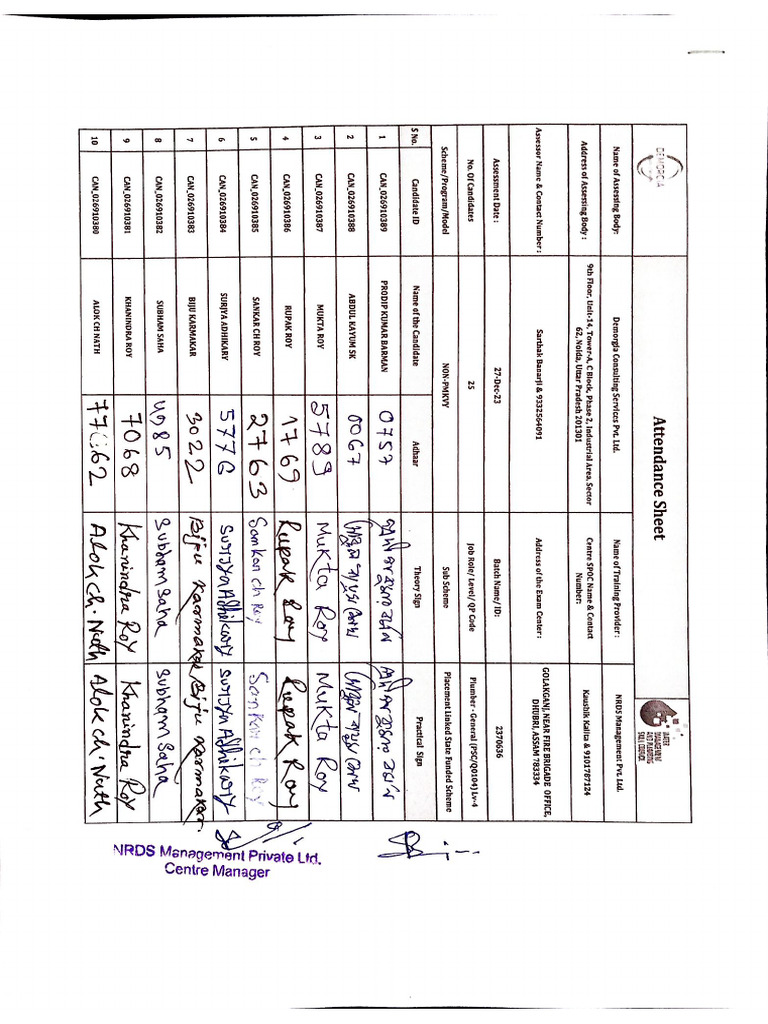 DEMORGIA
Attendance Sheet
WATER MANAGEMENT AND PLUMBING SKILL COUNCIL
Name of Assessing Body: Demorgia Consulting Services Pvt. Ltd. Name of Training Provider: NRDS Management Pvt. Ltd.
Address of Assessing Body: 9th Floor, Unit-14, Tower-A, C Block, Phase 2, Industrial Area, Sector 62, Noida, Uttar Pradesh 201301 Centre SPOC Name & Contact Number: Kaushik Kalita & 9101787124
Assessor Name & Contact Number: Sarthak Banarji & 9332564091 Address of the Exam Center: GOLAKGANJ, NEAR FIRE BRIGADE OFFICE, DHUBRI, ASSAM 783334
Assessment Date: 27-Dec-23 Batch Name/ ID: 2370636
No. Of Candidates 25 Job Role/ Level/ QP Code Plumber - General (PSC/Q0104) Lv-4
Scheme/Program/Model NON-PMKVY Sub Scheme Placement Linked State Funded Scheme
S No. Candidate ID Name of the Candidate Adhaar Theory Sign Practical Sign
1 CAN_026910389 PRODIP KUMAR BARMAN 0757
2 CAN_026910388 ABDUL KAYUM SK 0067
3 CAN_026910387 MUKTA ROY 5789 Mukta Roy Mukta Roy
4 CAN_026910386 RUPAK ROY 1769 Rupak Roy Rupak Roy
5 CAN_026910385 SANKAR CH ROY 2763 Sankar ch Roy Sankar ch Roy
6 CAN_026910384 SURJYA ADHIKARY 5776 Surjya Adhikary Surjya Adhikary
7 CAN_026910383 BIJU KARMAKAR 3022 Biju Karmakar Biju Karmakar
8 CAN_026910382 SUBHAM SAHA 4985 Subham Saha Subham Saha
9 CAN_026910381 KHANINDRA ROY 7068 Khanindra Roy Khanindra Roy
10 CAN_026910380 ALOK CH NATH Alok Ch. Nath Alok Ch. Nath
NRDS Management Private Ltd.
Centre Manager